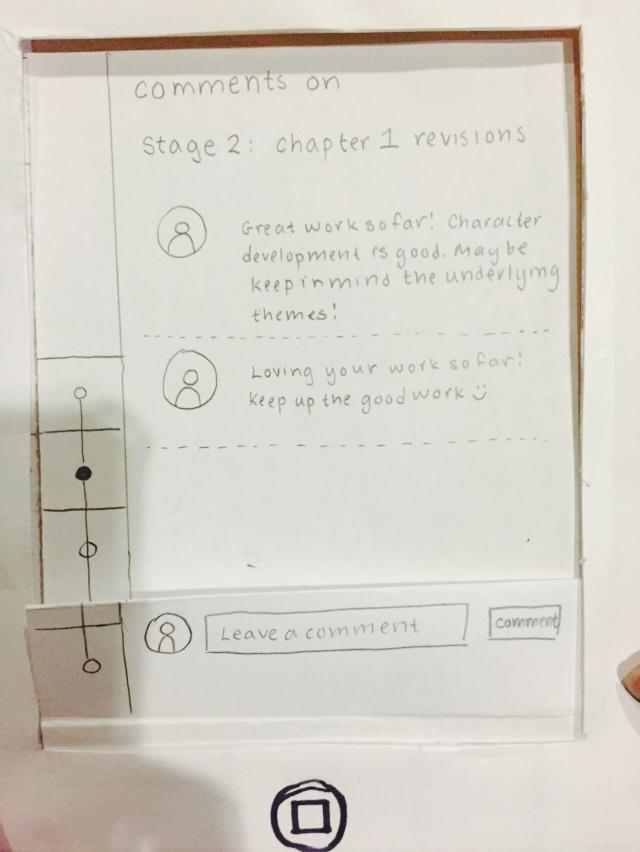 comments on
Stage 2: chapter 1 revisions
Great work so far! Character
development is good. Maybe
keep in mind the underlying
themes!
Loving your work so far!
Keep up the good work
Leave a comment
comment